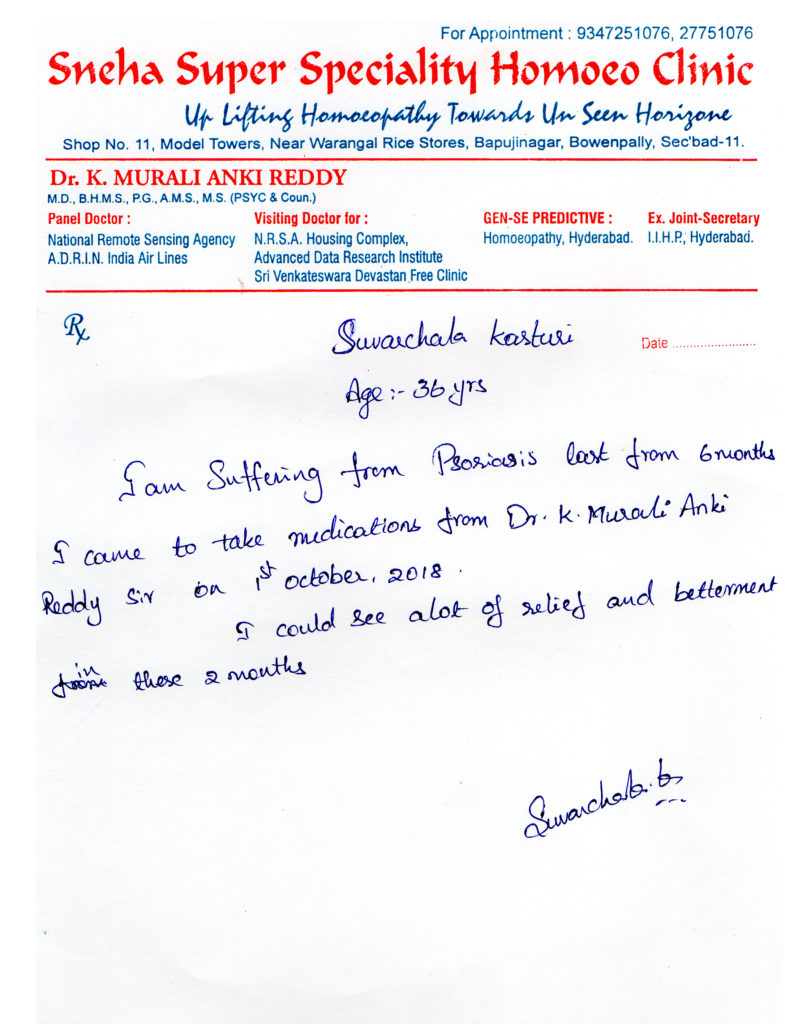 For Appointment : 9347251076, 27751076
Sneha Super Speciality Homoeo Clinic
Up Lifting Homoeopathy Towards Un Seen Horizone
Shop No. 11, Model Towers, Near Warangal Rice Stores, Bapujinagar, Bowenpally, Sec'bad-11.
Dr. K. MURALI ANKI REDDY
M.D., B.H.M.S., P.G., A.M.S., M.S. (PSYC & Coun.)
Panel Doctor :
National Remote Sensing Agency
A.D.R.I.N. India Air Lines
Visiting Doctor for :
N.R.S.A. Housing Complex,
Advanced Data Research Institute
Sri Venkateswara Devastan Free Clinic
GEN-SE PREDICTIVE :
Homoeopathy, Hyderabad.
Ex. Joint-Secretary
I.I.H.P., Hyderabad.
℞
Suvarchala Kasturi
Date ........................
Age :- 36 yrs
I am Suffering from Psoriasis last from 6 months
I came to take medications from Dr. K. Murali Anki
Reddy Sir on 1st october, 2018.
I could see alot of relief and betterment
in these 2 months
Suvarchala.